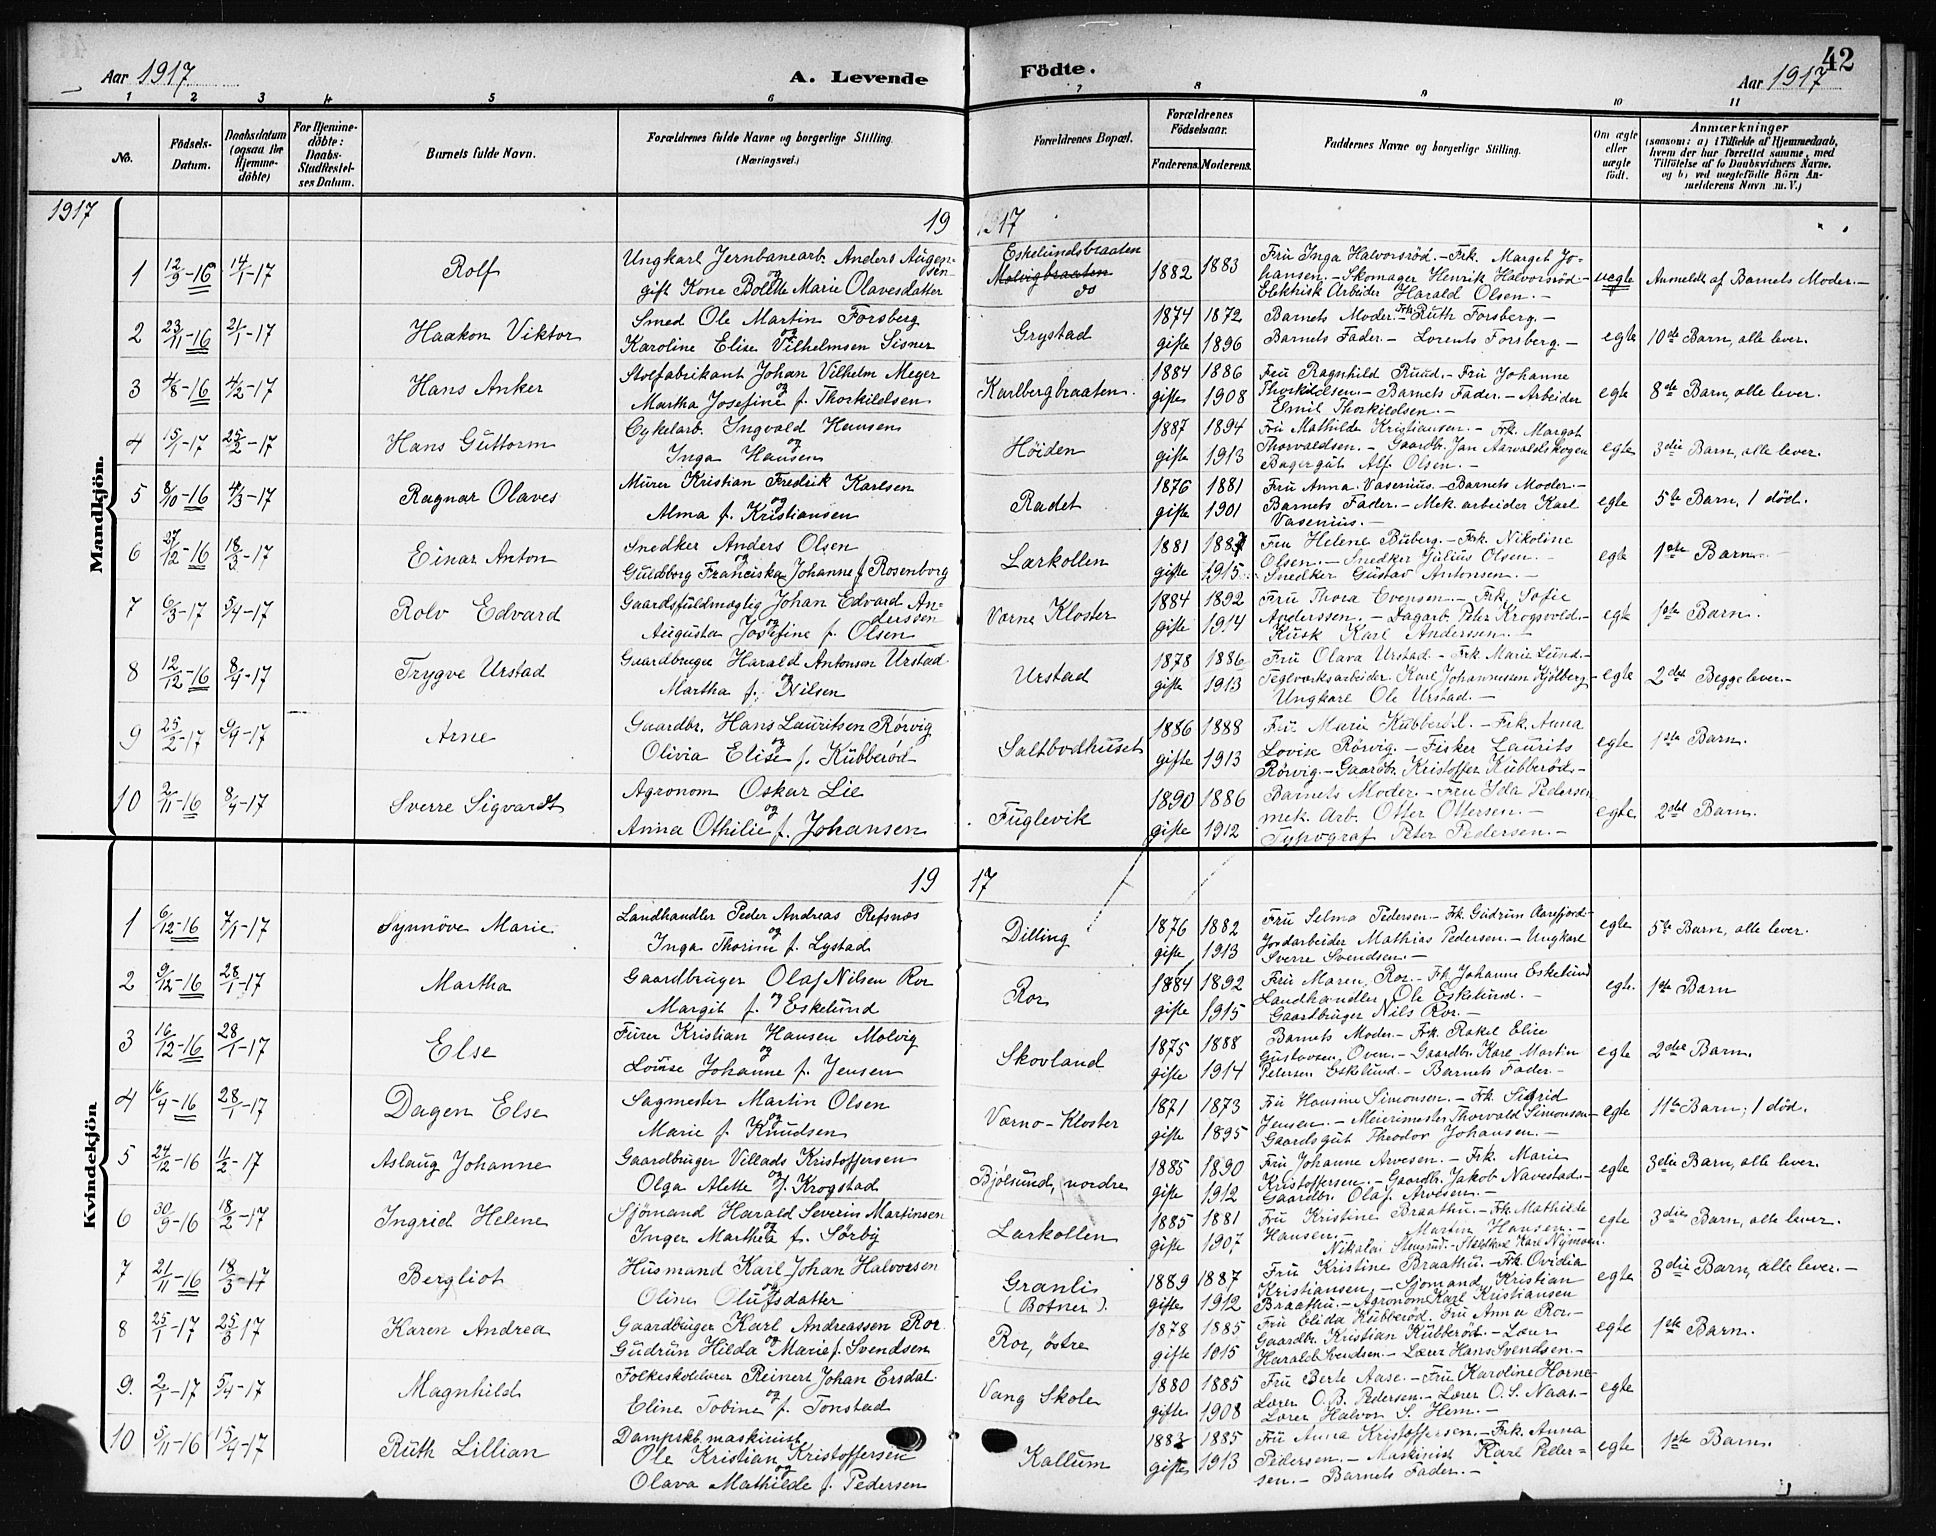 42
Aar 1917
A. Levende
Födte.
Aar 1917
1 2 3 4 5 6 7 8 9 10 11
No.
Födsels-Datum.
Daabsdatum (ogsaa for Hjemme-döbte)
For Hjemme-döbte: Daabs-Stadfestel-ses Datum.
Barnets fulde Navn.
Forældrenes fulde Navne og borgerlige Stilling. (Næringsvei.)
Forældrenes Bopæl.
Forældrenes Födselsaar.
Faderens. Moderens.
Faddernes Navne og borgerlige Stilling.
Om ægte eller uægte født.
Anmærkninger
(saasom: a) i Tilfælde af Hjemmedaab, hvem der har forrettet samme, med Tilföielse af to Daabsvidners Navne, og b) ved uægtefödte Börn An-melderens Navn m. V.)
1917
19 17
Mandkjön.
1 12/9-16 14/1-17 Rolf
Ungkarl Jernbanearb. Anders Augen-sen og
gift Kone Bolette Marie Olavesdatter
Eskelundsbraaten
Molvigbraaten
do
1882 1883
Fru Inga Halvorsröd.- Frk. Margit Jo-
hansen.- Skomager Henrik Halvorsröd-
Elektrisk Arbeider Harald Olsen.-
uegte Anmeldt af Barnets Moder.-
2 23/11-16 21/1-17 Haakon Viktor
Smed Ole Martin Forsberg
og
Karoline Elise Vilhelmsen Sisner
Grystad
1874 1872
gifte 1896
Barnets Moder.- Frk. Ruth Forsberg.-
Barnets Fader.- Lorents Forsberg.-
egte 10de Barn, alle lever.
3 4/8-16 4/2-17 Hans Anker
Stolfabrikant Johan Vilhelm Meyer
og
Martha Josefine f. Thorkildsen
Karlbergbraaten.
1884 1886
gifte 1908
Fru Ragnhild Ruud.- Fru Johanne
Thorkildsen.- Barnets Fader.- Arbeider
Emil Thorkildsen.-
egte 8de Barn, alle lever.
4 15/1-17 25/2-17 Hans Guttorm
Cykelarb. Ingvald Hansen
og
Inga Hansen
Höiden
1887 1894
gifte 1913
Fru Mathilde Kristiansen.- Frk. Margot
Thorvaldsen.- Gaardbr. Jan Aarvoldskogen
Bagergut Alf Olsen.-
egte 3die Barn, alle lever.
5 8/10-16 4/3-17 Ragnar Olaves
Murer Kristian Fredrik Karlsen
og
Alma f. Kristiansen
Radet
1876 1881
gifte 1901
Fru Anna Vasenius.- Barnets Moder.-
Barnets Fader.- Mek. arbeider Karl
Vasenius.-
egte 5te Barn, 1 död.
6 27/12-16 18/3-17 Einar Anton
Snedker Anders Olsen
og
Guldborg Franciska Johanne f. Rosenborg
Larkollen
1881 1887
gifte 1915
Fru Helene Buberg.- Frk. Nikoline
Olsen.- Snedker Julius Olsen.-
Snedker Gustav Antonsen.-
egte 1ste Barn.-
7 6/3-17 5/4-17 Rolv Edvard
Gaardsfuldmægtig Johan Edvard An-
derssen
og
Augusta Josefine f. Olsen
Værne Kloster
1884 1892
gifte 1914
Fru Thora Evensen.- Frk. Sofie
Anderssen.- Dagarb. Peter Krogsvold.-
Kusk Karl Anderssen.-
egte 1ste Barn.
8 12/12-16 8/4-17 Trygve Urstad
Gaardbruger Harald Antonsen Urstad
og
Martha f. Nilsen
Urstad
1878 1886
gifte 1913
Fru Olava Urstad.- Frk. Marie Lund.-
Teglverksarbeider Karl Johannessen Kjölberg-
Ungkarl Ole Urstad.-
egte 2det Begge lever.-
9 25/2-17 9/4-17 Arne
Gaardbr. Hans Lauritsen Rörvig
og
Olivia Elise f. Kubberöd
Saltbodhuset
1886 1888
gifte 1913
Fru Marie Kubberöd.- Frk. Anna
Lovise Rörvig.- Fisker Laurits
Rörvig.- Gaardbr. Kristoffer Kubberöd.-
egte 1ste Barn.
10 2/11-16 8/4-17 Sverre Sigvardt
Agronom Oskar Lie
og
Anna Othilie f. Johansen
Fuglevik
1890 1886
gifte 1912
Barnets Moder.- Fru Ida Pedersen
mek. Arb. Otter Ottersen.-
Typograf Peter Pedersen.-
egte 2det Barn.
19 17
Kvindekjön
1 6/12-16 7/1-17 Synnöve Marie
Landhandler Peder Andreas Refsnæs
og
Inga Thorine f. Lystad
Dilling
1876 1882
gifte 1913
Fru Selma Pedersen- Frk. Gudrun Aarefjord-
Jordarbeider Mathias Pedersen.- Ungkarl
Sverre Svendsen.-
egte 5te Barn, alle lever.
2 9/12-16 28/1-17 Martha
Gaardbruger Olaf Nilsen Ror
og
Margit f. Eskelund
Ror
1884 1892
gifte 1915
Fru Maren Ror.- Frk Johanne Eskelund
Landhandler Ole Eskelund.-
Gaardbruger Nils Ror.-
egte. 1ste Barn
3 16/12-16 28/1-17 Else
Furer Kristian Hansen Molvig
og
Louise Johanne f. Jensen
Skovland
1875 1888
gifte 1914
Barnets Moder.- Frk. Rakel Elise
Gustavsen, Oven.- Gaardbr. Karl Martin
Petersen Eskelund.- Barnets Fader-
egte 2det Barn.
4 16/4-16 28/1-17 Dagen Else
Sagmester Martin Olsen
og
Marie f. Knudsen
Værne-Kloster
1871 1873
gifte 1895
Fru Hansine Simonsen.- Frk. Sigrid
Jensen.- Meierimester Thorvald Simonsen-
Gaardsgut Theodor Johansen.-
egte 11te Barn, 1 död.
5 24/12-16 11/2-17 Aslaug Johanne
Gaardbruger Villads Kristoffersen
og
Olga Alette f. Krogstad
Bjölsund, nordre
1885 1890
gifte 1912
Fru Johanne Arvesen.- Frk. Marie
Kristoffersen.- Gaardbr. Jakob Navestad.-
Gaardbr. Olaf Arvesen.-
egte 3die Barn, alle lever.
6 30/9-16 18/2-17 Ingrid Helene
Sjömand Harald Severin Martinsen
og
Inger Marthea f. Sörby
Larkollen
1885 1881
gifte 1907
Fru Kristine Braathu.- Frk. Mathilde
Hansen.- Martin Hansen.-
Nikolai Stensrud.- Karl Nymoen.
egte 3die Barn, alle lever.
7 21/11-16 18/3-17 Bergliot
Husmand Karl Johan Halvorsen
og
Oline Olufsdatter
Granli
(Botner).
1889 1887
gifte 1912
Fru Kristine Braathu.- Frk. Ovidia
Kristiansen,- Sjömand Kristian
Braathu.- Agronom Karl Kristiansen
egte 3die Barn, alle lever.-
8 25/1-17 25/3-17 Karen Andrea
Gaardbruger Karl Andreassen Ror
og
Gudrun Hilda Marie f. Svendsen
Ror, östre
1878 1885
gifte 1915
Fru Elida Kubberöd. Fru Anna Ror.-
Gaardbr. Kristian Kubberöd.- Lærer
Harald Svendsen.- Lærer Hans Svendsen.-
egte 1ste Barn.
9. 2/1-17 5/4-17 Magnhild
Folkeskolelærer Reinert Johan Ersdal
og
Eline Tobine f. Tonstad
Vang Skole
1880 1885
gifte 1908
Fru Berte Aase.- Fru Karoline Horne-
Lærer O. B. Pedersen.- Lærer O. S. Naas.-
Lærer Halvor S. Hem.-
egte
10 5/11-16 15/4-17 Ruth Lillian
Dampskb. maskinist
Ole Kristian Kristoffersen
og
Olava Mathilde f. Pedersen
Kallum
1883 1885
gifte 1913
Fru Anna Kristoffersen.- Frk. Anna
Pedersen.- Maskinist Karl Peder-
sen.- Barnets Fader.-
egte 1ste Barn.